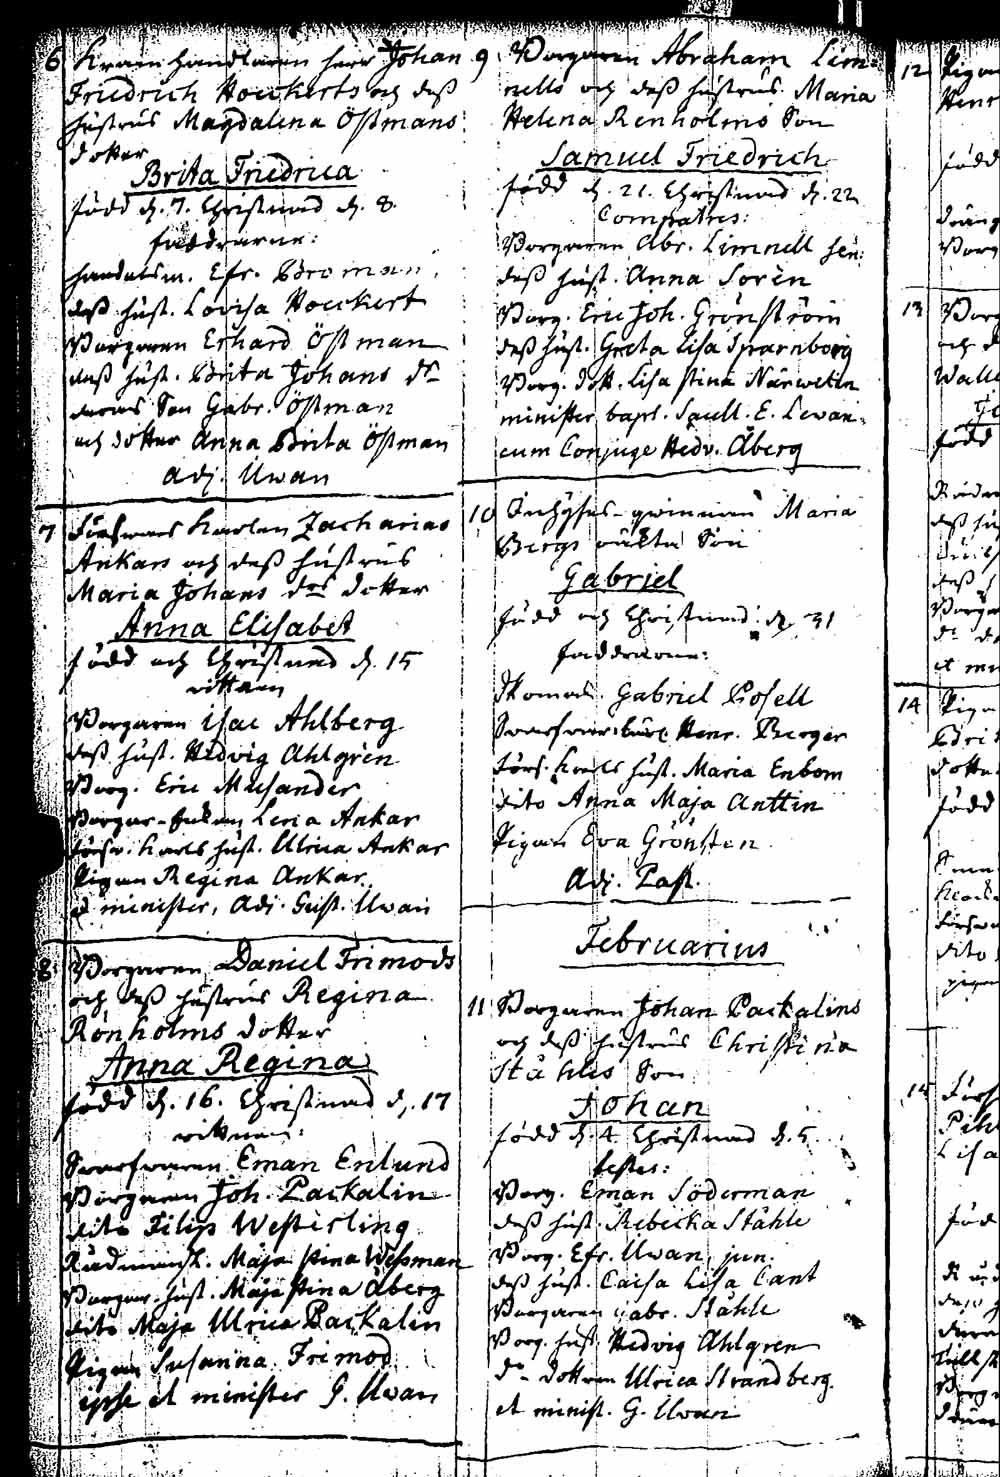 6 Kramhandlaren herr Johan
Friedrich Hoeckerts och deß
hustrus Magdalena Östmans
dotter
Brita Friedrica
född d. 7. Christnad d. 8.
faddrarne:
handelsm. Efr. Broman,
deß hust. Lovisa Hoeckert
Borgaren Erhard Östman
deß hust. Brita Johans dr
deras Son Gabr. Östman
och dotter Anna Brita Östman
adj. Uwan
7 Karlen Zacharias
Ankars och deß hustrus
Maria Johans drs dotter
Anna Elisabet
född och Christnad d. 15
vittnen
Borgaren Isac Ahlberg
deß hust. Hedvig Ahlgrén
Borg. Eric Musander
Borgar-Enkan Lena Ankar
förśw. Karls hust. Ulrica Ankar
Pigan Regina Ankar.
et minister, Adj. Gust. Uwan
8 Borgaren Daniel Frimods
och deß hustrus Regina
Rönholms dotter
Anna Regina
född d. 16. Christnad d. 17
vittnen:
Swarfwaren Eman Enlund
Borgaren Joh. Packalin
dito Filip Westerling
Rådmansh. Maja Stina Weßman
Borgar. hust. Maja Stina Åberg
dito Maja Ulrica Packalin
Pigan Susanna Frimod
ipse et minister G. Uwan
9 Borgaren Abraham Lim=
nells och deß hustrus Maria
Helena Renholms Son
Samuel Friedrich
född d. 21. Christnad d. 22
Compatres:
Borgaren Abr. Limnell sen:
deß hust. Anna Sorèn
Borg. Eric Joh. Grönström
deß hust. Greta Lisa Sparnborg
Borg. dott. Lisa Stina Närwelin
minister bapt. Saull. E. Lewan=
cum Conjuge Hedv. Åberg
10 Inhyses-qwinnan Maria
Bergs oäkta Son
Gabriel
född och Christnad d. 31
faddrarne:
Skomak. Gabriel Rosell
Henr. Berger
förs. Karls hust. Maria Enbom
dito Anna Maja Anttin
Pigan Eva Grönsten
Adj. Past.
Februarius
11 Borgaren Johan Packalins
och deß hustrus Christina
Ståhles Son
Johan
född d. 4. Christnad d. 5
testes:
Borg. Eman Söderman
deß hust. Rebecka Ståhle
Borg. Efr. Uwan, jun.
deß hust. Caisa Lisa Cant
Borgaren Gabr. Ståhle
Borg. hust. Hedvig Ahlgren
d:o dottren Ulrica Strandberg.
et minist. G. Uwan
12 Pigan
Henr
född
Borg
13 Borg
och d
Walle
född
deß hu
deß h
Borga
et min
14 Piga
Brit
dotte
född
dito
15
Pihl
Lisa
föd
Borg